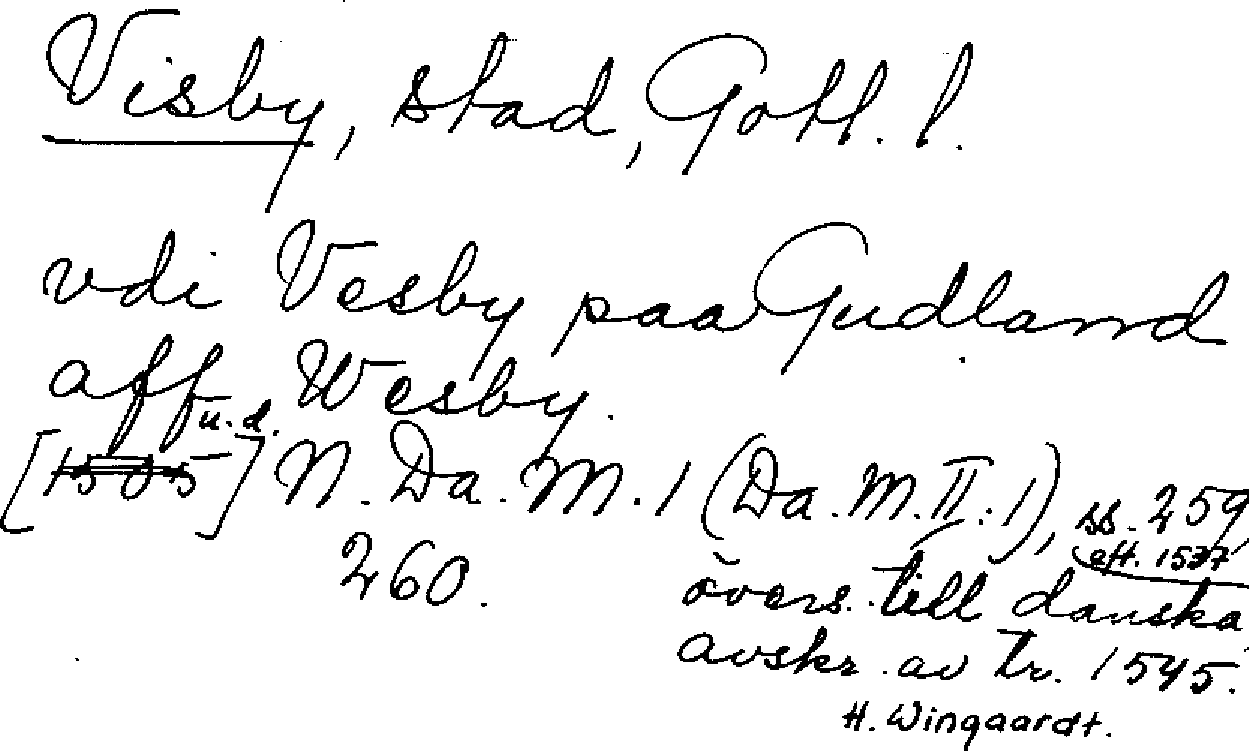 Visby, stad, Gotl. l.
vdi Vesby paa Gudland
aff Wesby.
u. d.
[1505] N. Da. M. 1 (Da. M. II: 1), ss. 259,
260.
eft. 1537
övers. till danska
avskr. av tr. 1545.
H. Wingaardt.